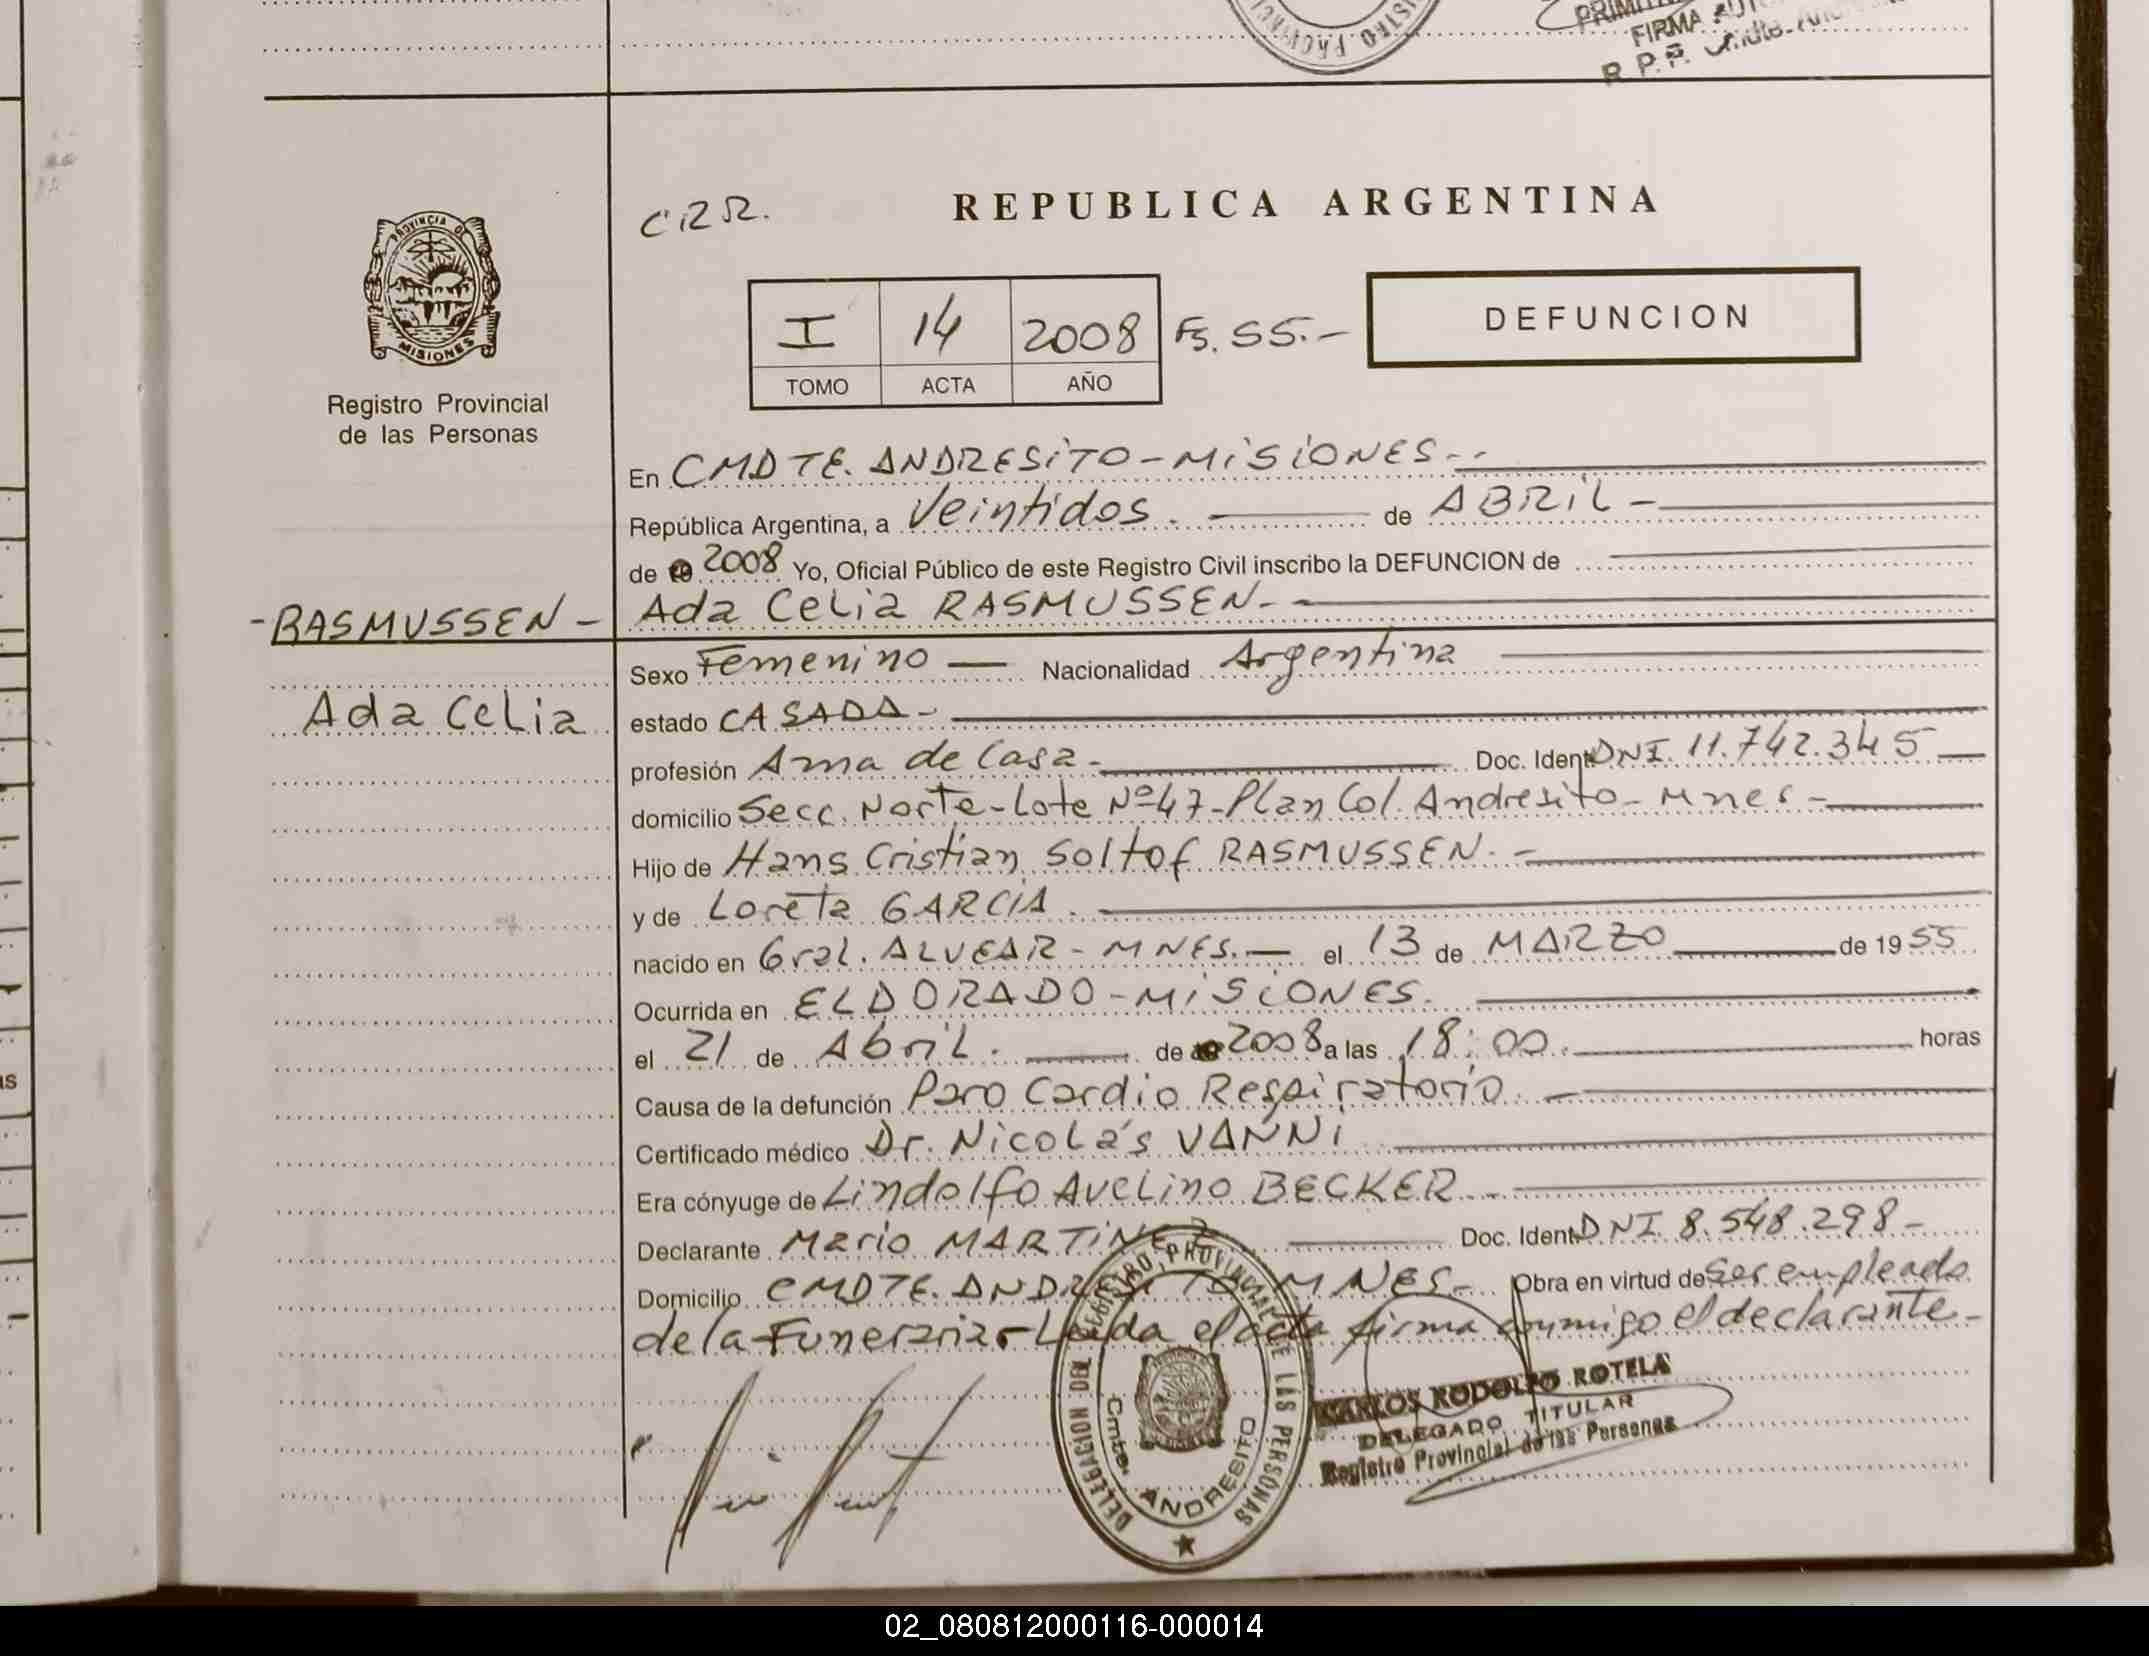 PROVINCIA DE
MISIONES
Registro Provincial
de las Personas
C.R.R.
REPUBLICA ARGENTINA
I 14 2008 Fs. 55.-
TOMO ACTA AÑO
DEFUNCION
En CMDTE. ANDRESITO - MISIONES.-
República Argentina, a Veintidos. de ABRIL -
de 2008 Yo, Oficial Público de este Registro Civil inscribo la DEFUNCION de
- RASMUSSEN - Ada Celia RASMUSSEN.-
Sexo Femenino — Nacionalidad Argentina
Ada Celia
estado CASADA -
profesión Ama de Casa - Doc. Ident. DNI. 11.742.345 —
domicilio Secc. Norte - Lote Nº 47 - Plan Col. Andresito - Mnes -
Hijo de Hans Cristian Soltof RASMUSSEN. -
y de Loreta GARCIA.
nacido en Gral. ALVEAR - MNES. — el 13 de MARZO de 19 55
Ocurrida en ELDORADO - MISIONES.
el 21 de Abril. de 2008 a las 18:00. horas
Causa de la defunción Paro Cardio Respiratorio. —
Certificado médico Dr. Nicolás VANNI
Era cónyuge de Lindolfo Avelino BECKER -
Declarante Mario MARTINEZ Doc. Ident. DNI 8.548.298 -
Domicilio CMDTE. ANDRESITO MNES - Obra en virtud de Ser empleado
de la Funeraria - Leida el acta firma conmigo el declarante -
DELEGACION DEL REGISTRO PROVINCIAL DE LAS PERSONAS
Cmte. ANDRESITO
CARLOS RODOLFO ROTELA
DELEGADO TITULAR
Registro Provincial de las Personas
02_080812000116-000014